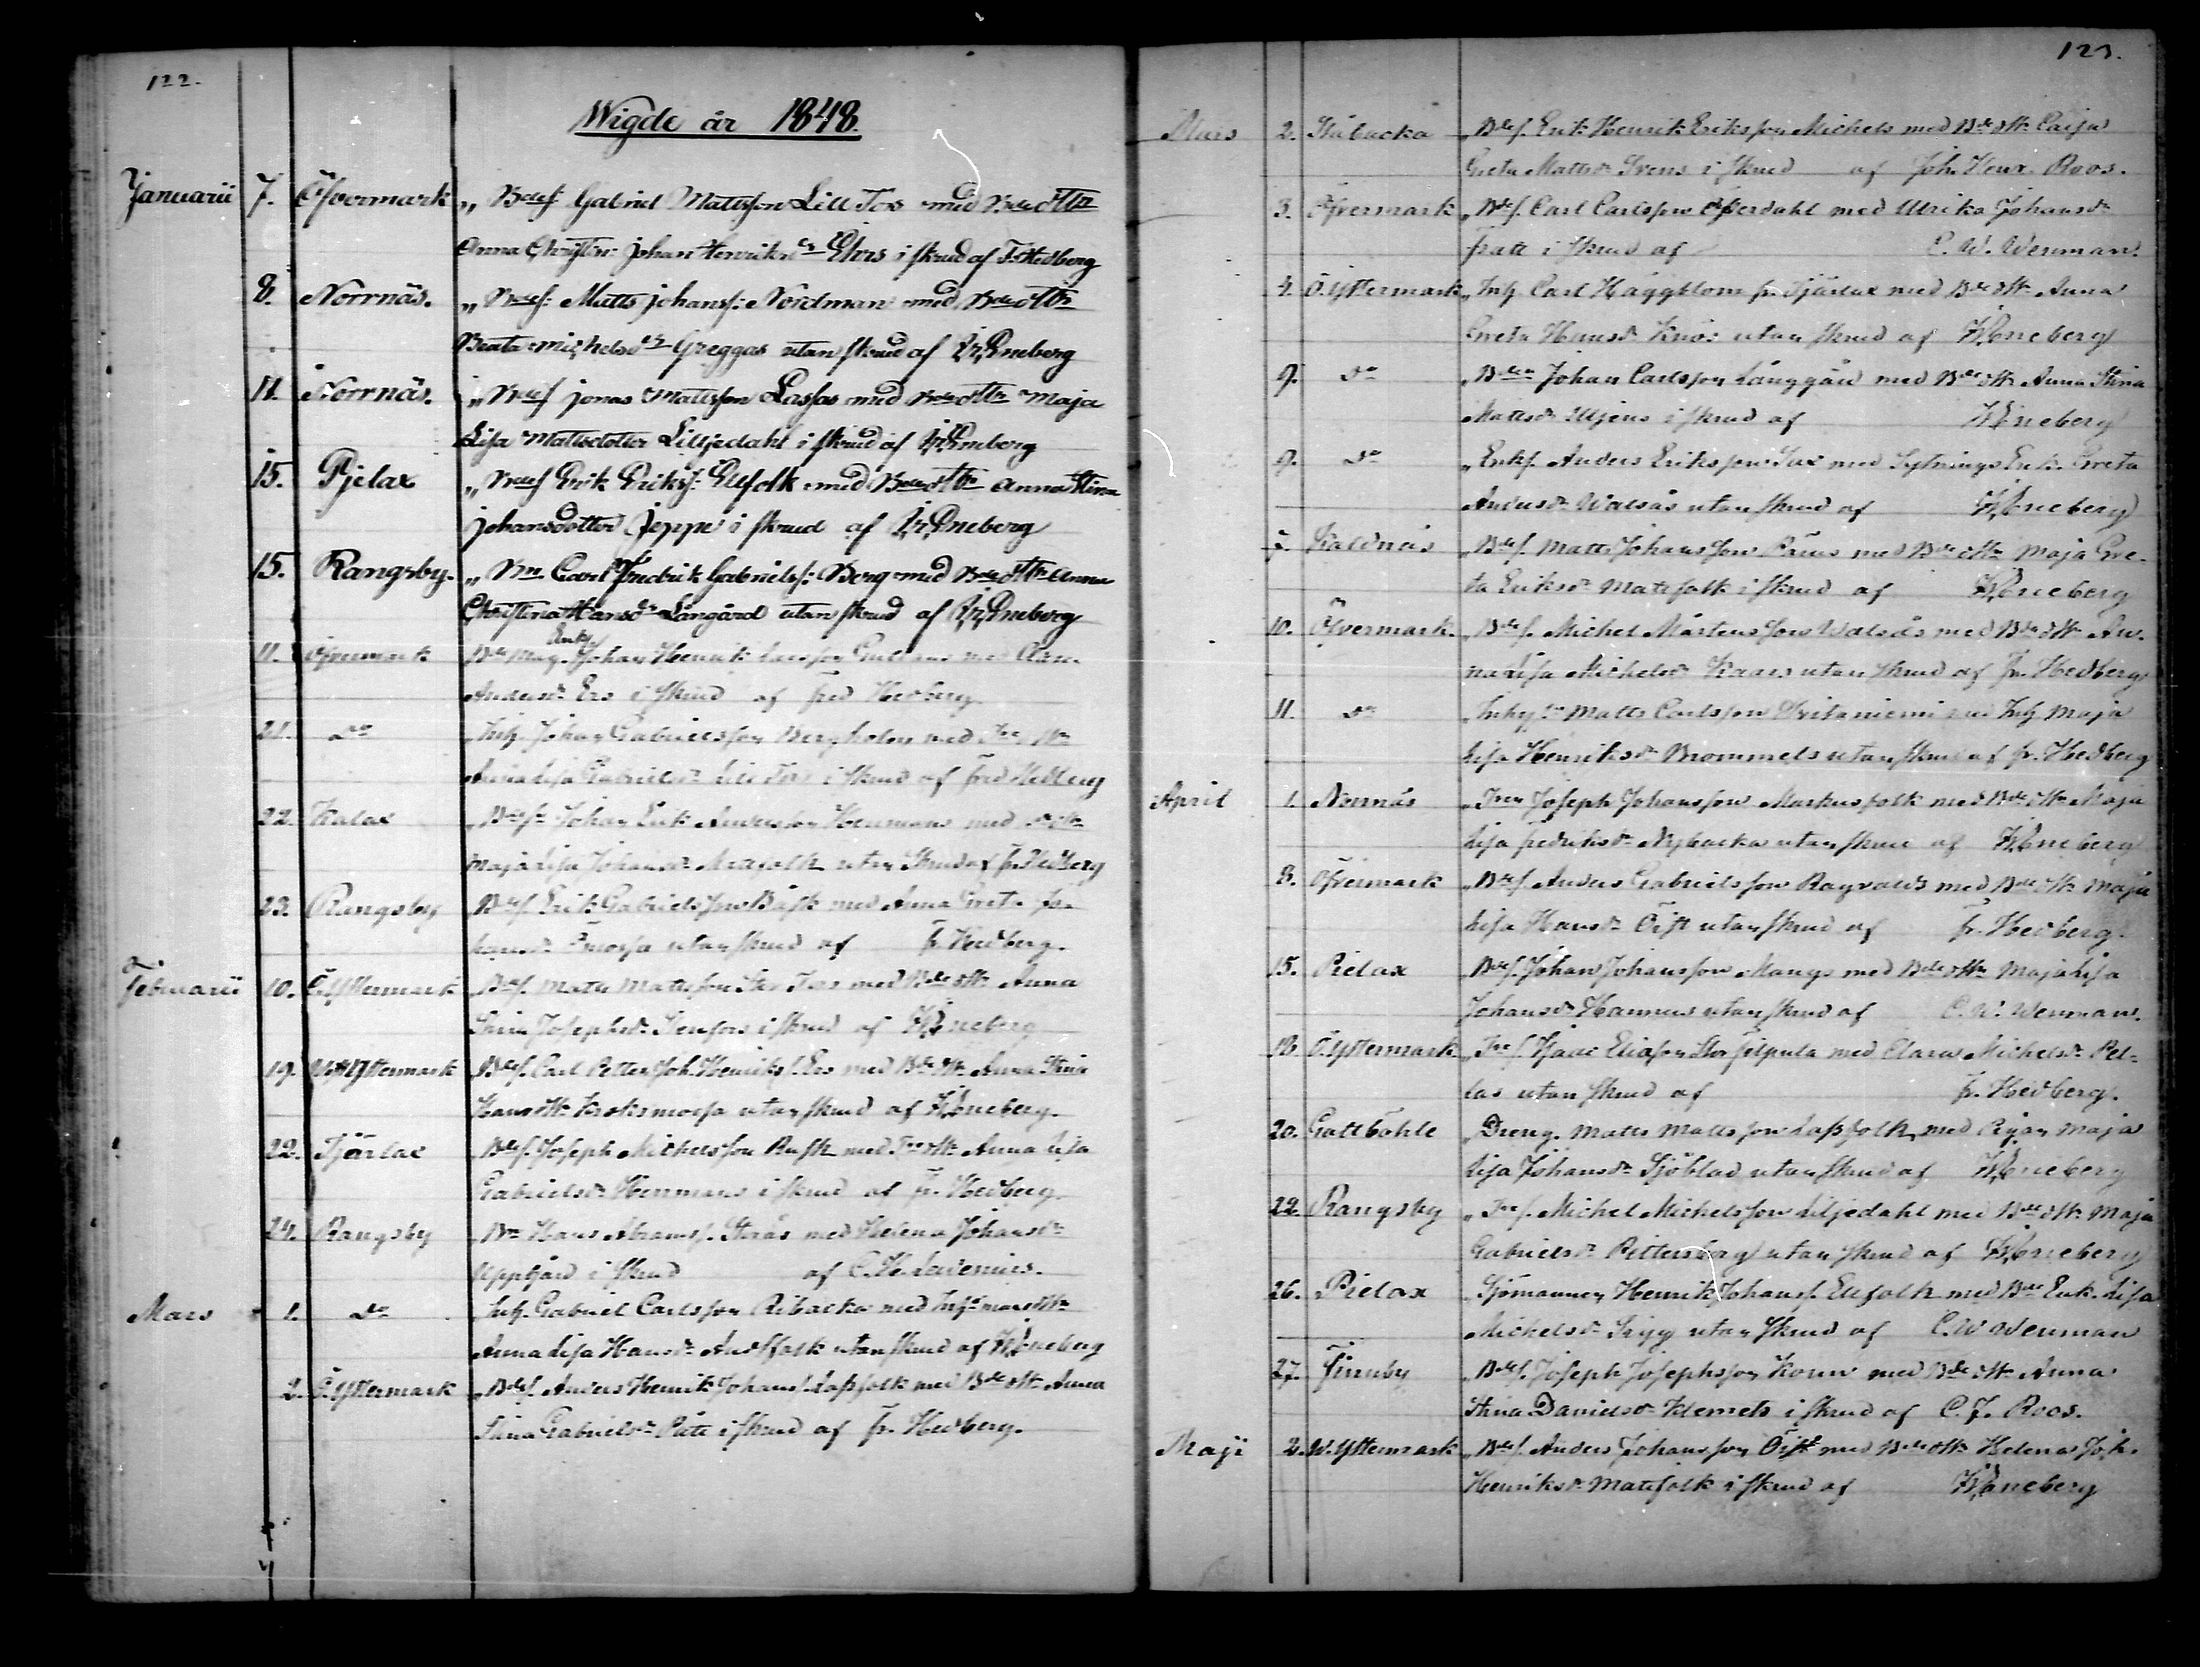 122.
Wigde år 1848.
Januarii 7. Öfvermark „ Bdes. Gabriel Mattsson Lill Tox med Bdedottr
Anna Christin. Johan Henriksdr Ehrs i skrud af F. Hedberg
8. Norrnäs. „ Bdes: Matts Johanss: Nordman med Bdedottr
Beata Michelsdr Greggas utan skrud af Kröneberg
11. Norrnäs. „ Bdes Jonas Mattsson Lassas med Bdedottr Maja
Lisa Mattsdotter Lilljedahl i skrud af Kröneberg
15. Pjelax „ Bdes Erik Erikss: Ellfolk med Bdedottr Anna Stina
Johansdotter Jeppe i skrud af Kröneberg
15. Rangsby. „ Bn. Carl Fredrik Gabrielss: Borg med Bdedottr Anna
Christina Hansdr Långård utan skrud af Kröneberg
11. Öfvermark Johan Henrik Larsson med
Andersdr Ers i skrud af Fred Hedberg
21. Do Inh. Johan Gabrielsson Bergholm med
Anna Lisa Gabrielsdr Lill Tox i skrud af Fred Hedberg
22. Kalax „ Johan Erik Andersson Hermans med
Maja Lisa Johansdr Mattfolk utan skrud af Fr. Hedberg
23. Rangsby „ Bdes. Erik Gabrielsson Båsk med Anna Greta Jo-
hansdr utan skrud af Fr. Hedberg.
Februarii 10. Ö. Yttermark „ Bdes. Matts Mattsson Stor Tox med Bdedottr Anna
Stina Josephsdr Stenfors i skrud af Kröneberg
19. West Yttermark „ Bdes. Carl Petter Joh. Henriks. Ers med Bdedottr Anna Stina
Hansdottr Kroksmossa utan skrud af Kröneberg.
22. Tjärlax „ Bdes. Joseph Michelsson Rusk med Anna Lisa
Gabrielsdr Herrmans i skrud af Fr. Hedberg.
24. Rangsby „ Bn Hans Abrams. Strås med Helena Johansdr
Uppgård i skrud af C. H. Lavenius.
Mars 1. Do „ Inh. Gabriel Carlsson Ribacka med
Anna Lisa Hansdr Andfolk utan skrud af Kröneberg
2. Ö. Yttermark „ Bdes. Anders Henrik Johans. Lassfolk med Bdedottr Anna
Stina Gabrielsdr Pått i skrud af Fr. Hedberg.
123.
Mars 2. Ståbacka „ Bdes. Erik Henrik Eriksson Michels med Bdedottr Caisa
Greta Mattsdr Svens i skrud af Joh. Henr. Roos.
3. Öfvermark „ Bdes. Carl Carlsson Österdahl med Ulrika Johansdr
Fratt i skrud af C. W. Wenman.
4. Ö. Yttermark „ Inh. Carl Häggblom fr. Tjärlax med Bdedottr Anna
Greta Hansdr Knös utan skrud af Kröneberg
9. Do „ Bden Johan Carlsson Långgård med Bdedottr Anna Stina
Mattsdr Uljens i skrud af Kröneberg
9. Do „ Enkl. Anders Eriksson Sax med Sytnings Enk. Greta
Andersdr Walsås utan skrud af Kröneberg
7. Kaldnäs „ Bdes. Matts Johansson Påus med Bdedottr Maja Gre-
ta Eriksdr Mattfolk i skrud af Kröneberg
10. Öfvermark. „ Bdes. Michel Mårtensson Walsås med Bdedottr An-
na Lisa Michelsdr Kaars utan skrud af Fr. Hedberg
11. Do „ Matts Carlsson med Inh. Maja
Lisa Henriksdr Brommels utan skrud af Fr. Hedberg
April 1. Norrnäs „ Joseph Johansson Markusfolk med Bdedottr Maja
Lisa Fredriksdr Nybacka utan skrud af Kröneberg
8. Öfvermark „ Bdes. Anders Gabrielsson Ragvalds med Bdedottr Maja
Lisa Hansdr Öist utan skrud af Fr. Hedberg.
15. Pielax „ Bdes. Johan Johansson Mangs med Bdedottr Maja Lisa
Johansdr Hannus utan skrud af C. W. Wenman.
18. Ö. Yttermark „ Isaac Eliasson Stor Filpula med Clara Michelsdr Pel-
las utan skrud af Fr. Hedberg.
20. Gottböhle „ Dreng. Matts Mattsson Lassfolk med Pigan Maja
Lisa Johansdr Sjöblad utan skrud af Kröneberg
22. Rangsby „ Michel Michelsson Liljedahl med Bdedottr Maja
Gabrielsdr Pettersberg utan skrud af Kröneberg
26. Pielax „ Sjömannen Henrik Johans. Ellfolk med Bde Enk. Lisa
Michelsdr Trygg utan skrud af C. W. Wenman
27. Finnby „ Bdes. Joseph Josephsson Korw med Bdedottr Anna
Stina Danielsdr Klemets i skrud af C. J. Roos.
Maji 2. W. Yttermark „ Bdes. Anders Johansson Öist med Bdedottr Helena Joh.
Henriksdr Mattfolk i skrud af Kröneberg